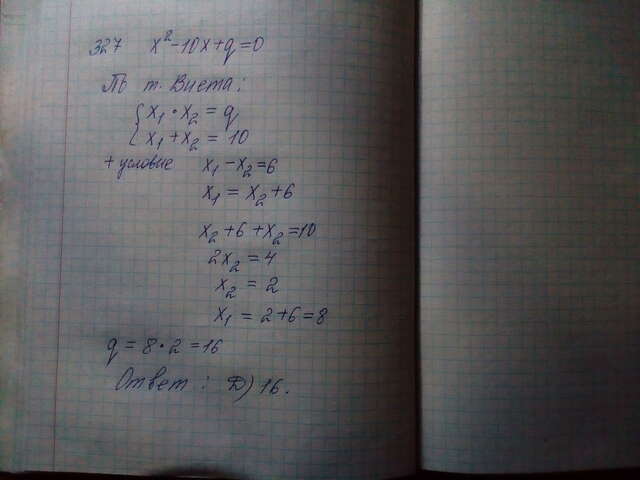 327 x²-10x+q=0
По т. Виета:
x₁·x₂ = q
x₁+x₂ = 10
+ условие x₁-x₂=6
x₁ = x₂+6
x₂+6+x₂=10
2x₂ = 4
x₂ = 2
x₁ = 2+6=8
q = 8·2=16
Ответ: D) 16.